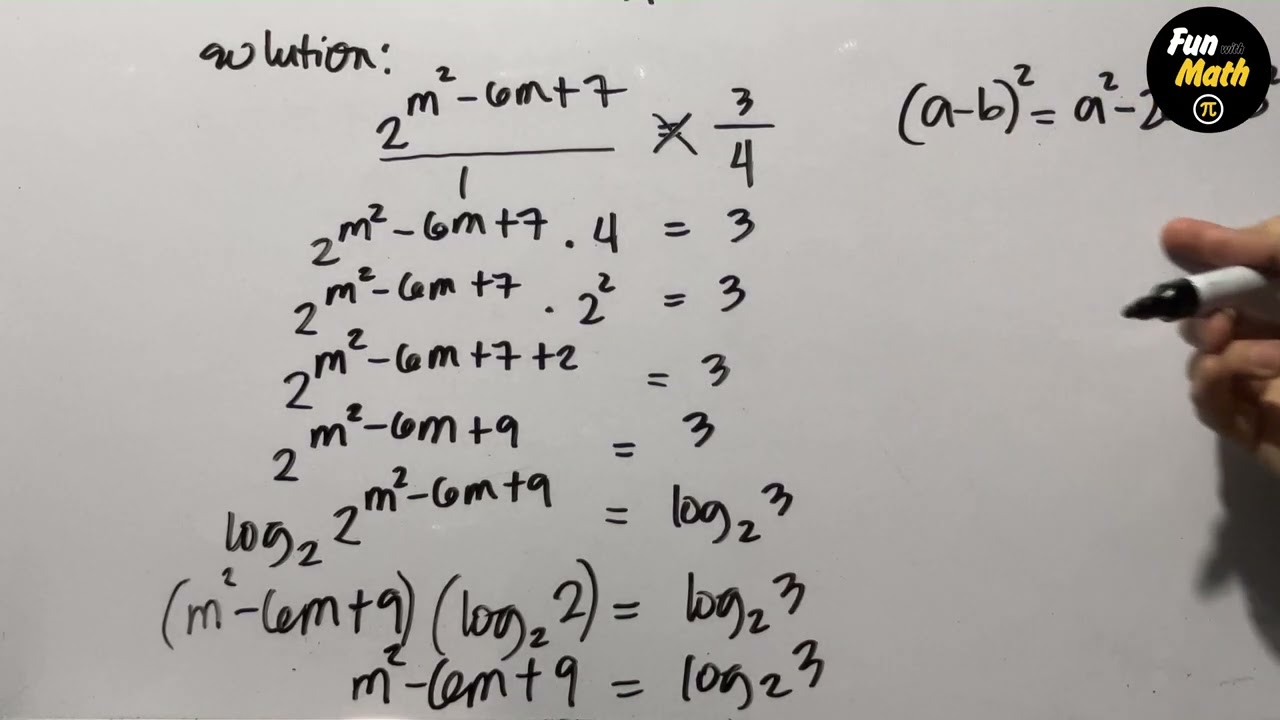 solution:
2^(m²-6m+7)/1 = 3/4
(a-b)² = a²-2
2^(m²-6m+7) . 4 = 3
2^(m²-6m+7) . 2² = 3
2^(m²-6m+7+2) = 3
2^(m²-6m+9) = 3
log₂ 2^(m²-6m+9) = log₂ 3
(m²-6m+9)(log₂ 2) = log₂ 3
m²-6m+9 = log₂ 3
Fun with
Math
π